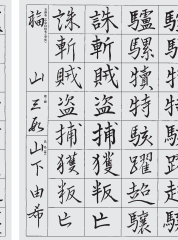 驢騾犢特駭躍超驤
誅斬賊盗捕獲叛亡
誅斬賊盗捕獲叛亡
福山三段山下由希